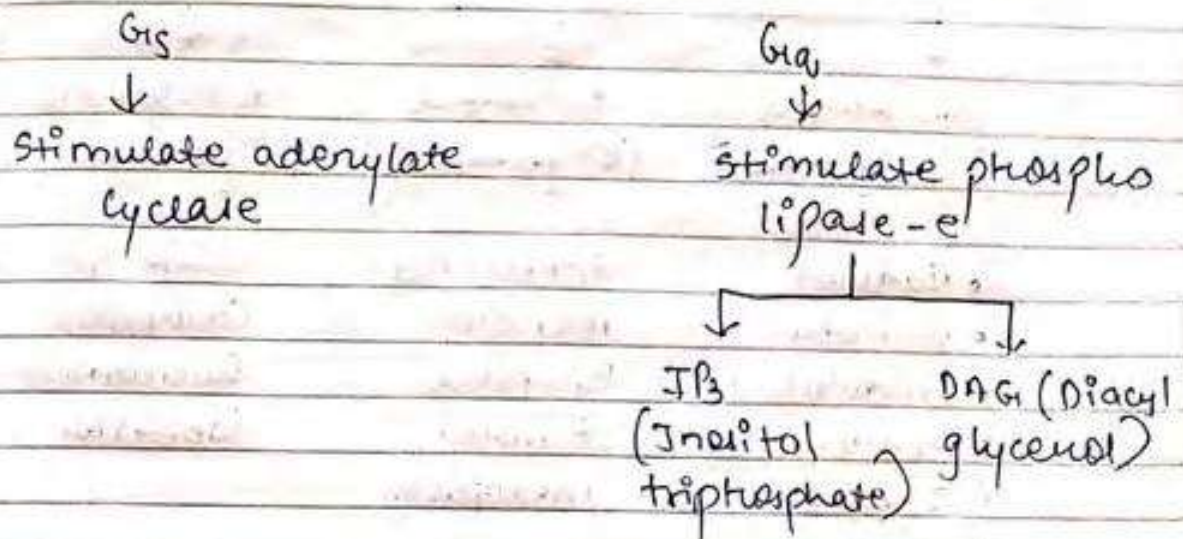 Gs
Stimulate adenylate
cyclase
Gq
stimulate phospho
lipase-c
IP3
(Inositol
triphosphate)
DAG (Diacyl
glycerol)